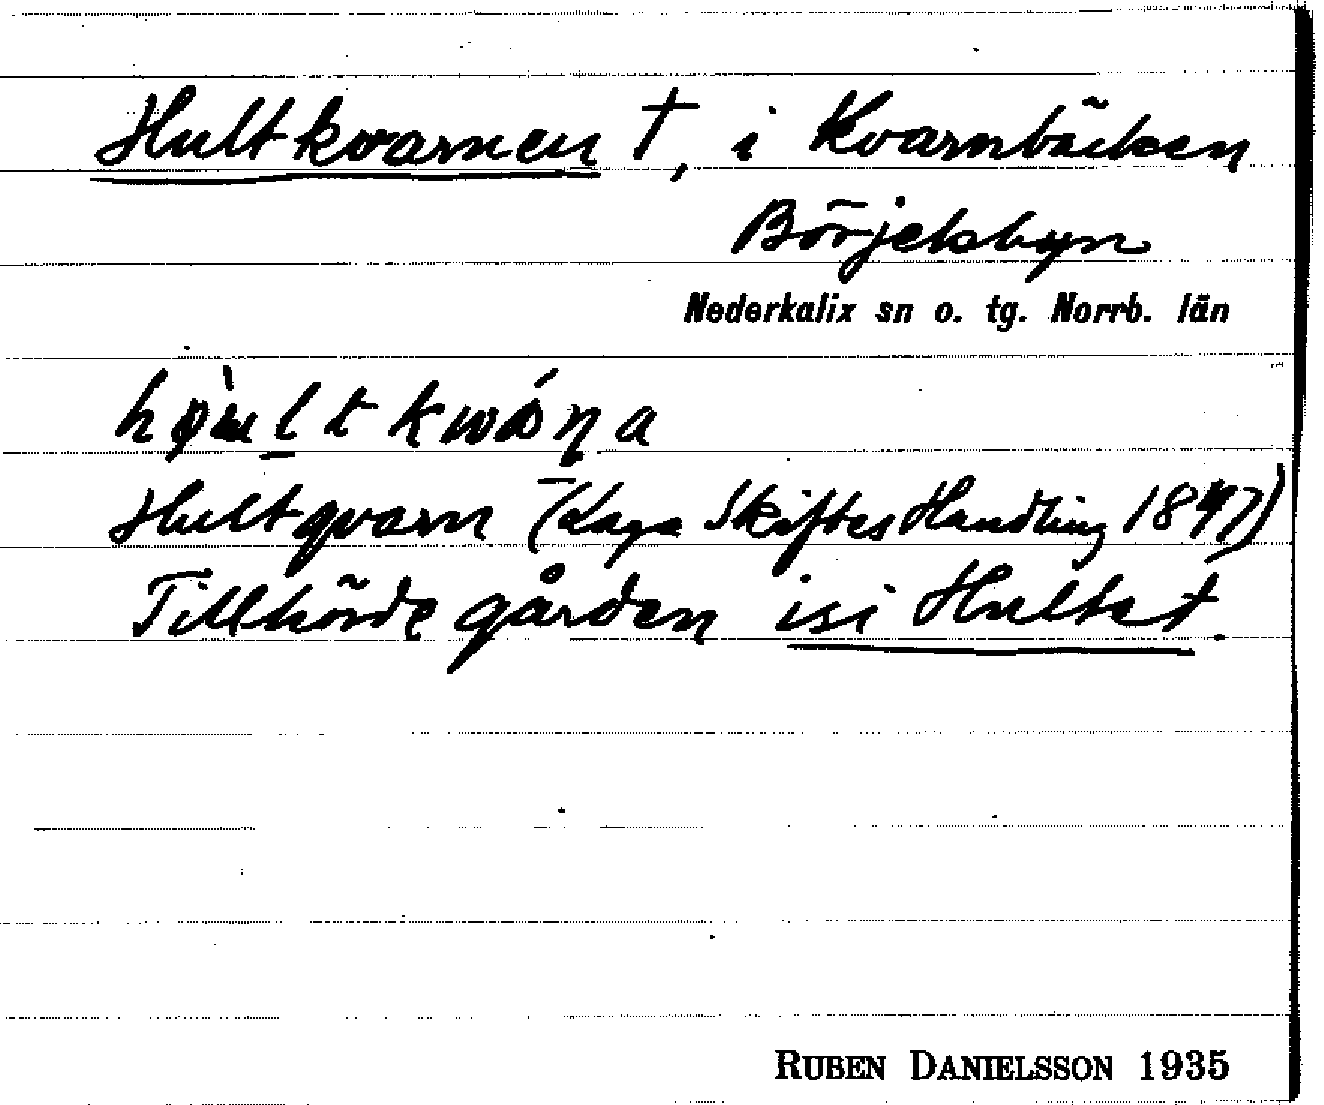 Hultkvarnen †, i Kvarnbäcken
Börjelsbyn
Nederkalix sn o. tg. Norrb. län
Hultqvarn (Laga Skiftes Handling 1847)
Tillhörde gården isi Hultet.
RUBEN DANIELSSON 1935